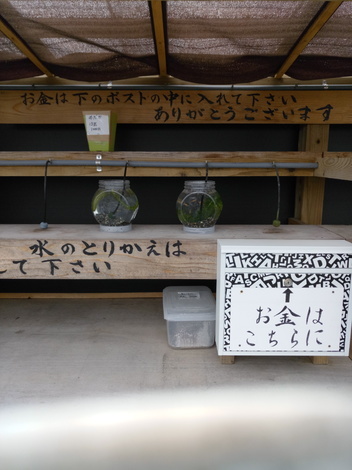 お金は下のポストの中に入れて下さい
ありがとうございます
水のとりかえは
して下さい
お金は
こちらに